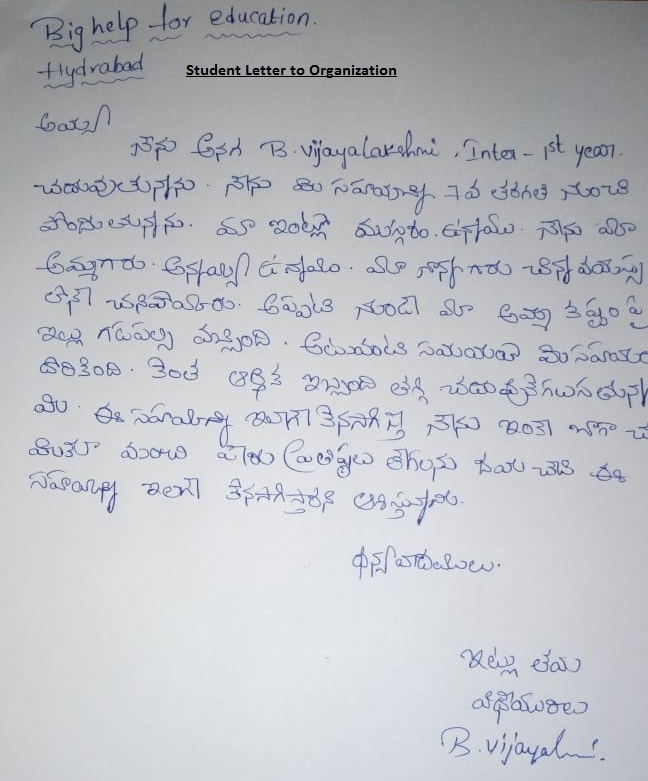 Big help for education.
Hydrabad
Student Letter to Organization
అయ్యా
నేను అనగ B. vijayalakshmi, Inter - 1st year.
చదువుతున్నాను. నేను ఈ సహాయాన్ని 7వ తరగతి నుంచి
పొందుతున్నాను. మా ఇంట్లో ముగ్గురం. ఉన్నాము. నేను మా
అమ్మగారు. అన్నయ్య ఉన్నాము. మా నాన్నగారు చిన్న వయస్సు
లోనే చనిపోయారు. అప్పటి నుండి మా అమ్మ కష్టం పై
ఇల్లు గడపల్సి వచ్చింది. అటువంటి సమయంలో మీ సహాయం
దొరికింది. కొంత ఆర్ధిక ఇబ్బంది తగ్గి
ఈ సహాయాన్ని ఇలాగే కొనసాగిస్తే నేను ఇంకా బాగా
మంచి పేరు ప్రతిష్ఠలు తేగలను దయ చేసి ఈ
సహాయాన్ని ఇలాగే కొనసాగిస్తారని ఆశిస్తున్నాను.
ధన్యవాదములు.
ఇట్లు తమ
విధేయురాలు
B. vijayalmi.